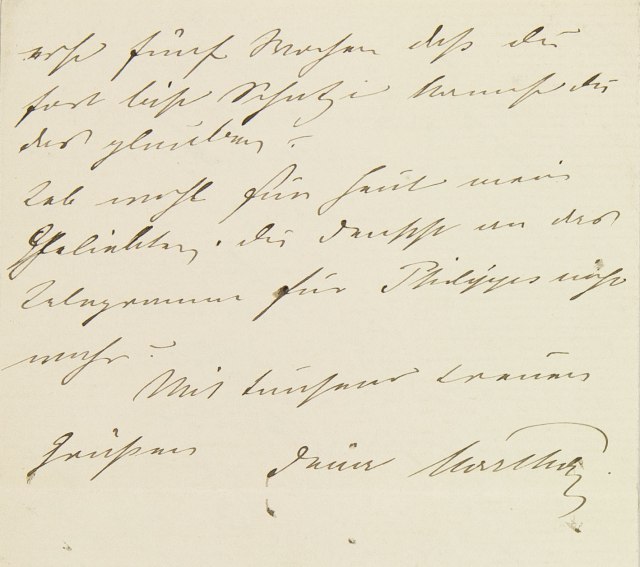 erst fünf Wochen daß du
fort bist Schatzi kannst du
das glauben?
Leb wohl für heut mein
Geliebter, du denkst an das
Telegramm für Philipps nicht
wahr?
Mit tausend treuen
Grüßen deine Martha